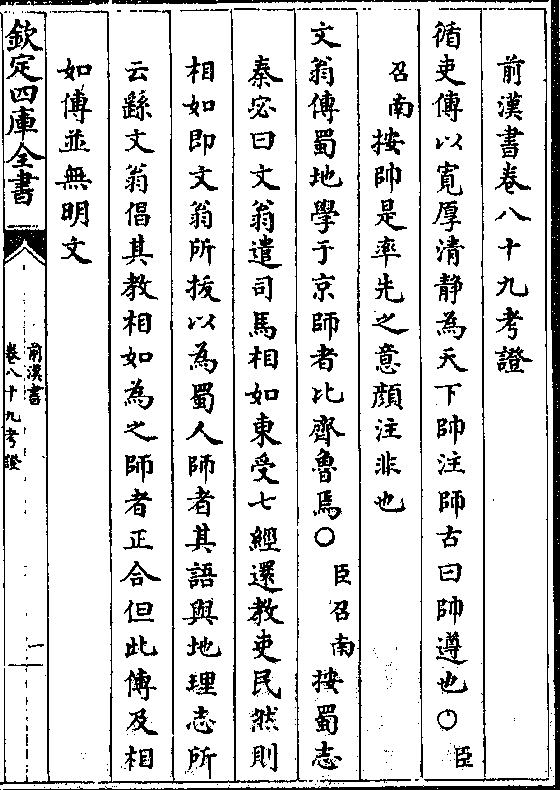 前漢書卷八十九考證
循吏傳以寛厚清静為天下帥注師古曰帥遵也○臣
召南按帥是率先之意顔注非也
文翁傳蜀地學于京師者比齊魯焉○臣召南按蜀志
秦宓曰文翁遣司馬相如東受七經還教吏民然則
相如即文翁所拔以為蜀人師者其語與地理志所
云繇文翁倡其教相如為之師者正合但此傳及相
如傳並無明文
欽定四庫全書
前漢書
卷八十九考證
一